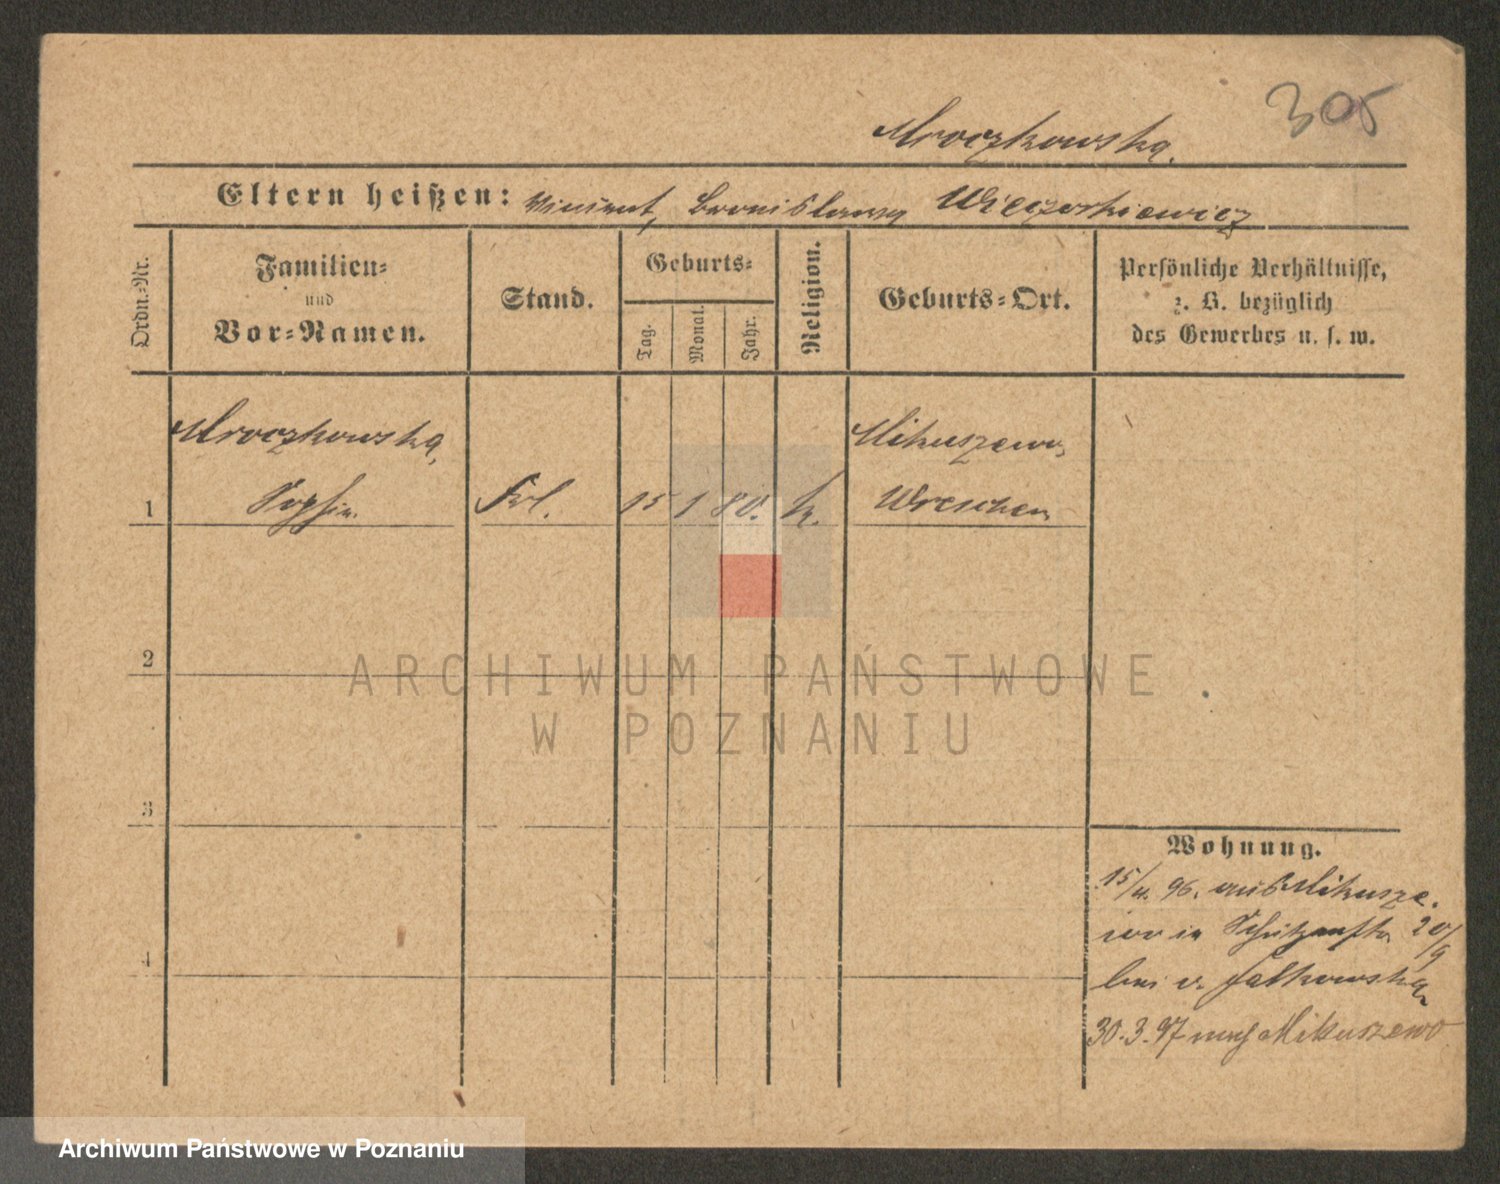 305
Mroczkowska.
Eltern heißen: Vincent, Bronislawa Wieczorkiewicz
Ordn.-Nr.
Familien-
und
Vor-Namen.
Stand.
Geburts-
Tag.
Monat.
Jahr.
Religion.
Geburts-Ort.
Persönliche Verhältnisse,
z. B. bezüglich
des Gewerbes u. s. w.
Mroczkowska,
Mikuszewo,
1 Sophia Frl. 15 1 80. k. Wreschen
2
ARCHIWUM PAŃSTWOWE
W POZNANIU
3
Wohnung.
15/4. 96. aus Mikusze-
wo in Schützenstr 20/9
bei v. Jalkowska
4
30.3.97 nach Mikuszewo
Archiwum Państwowe w Poznaniu